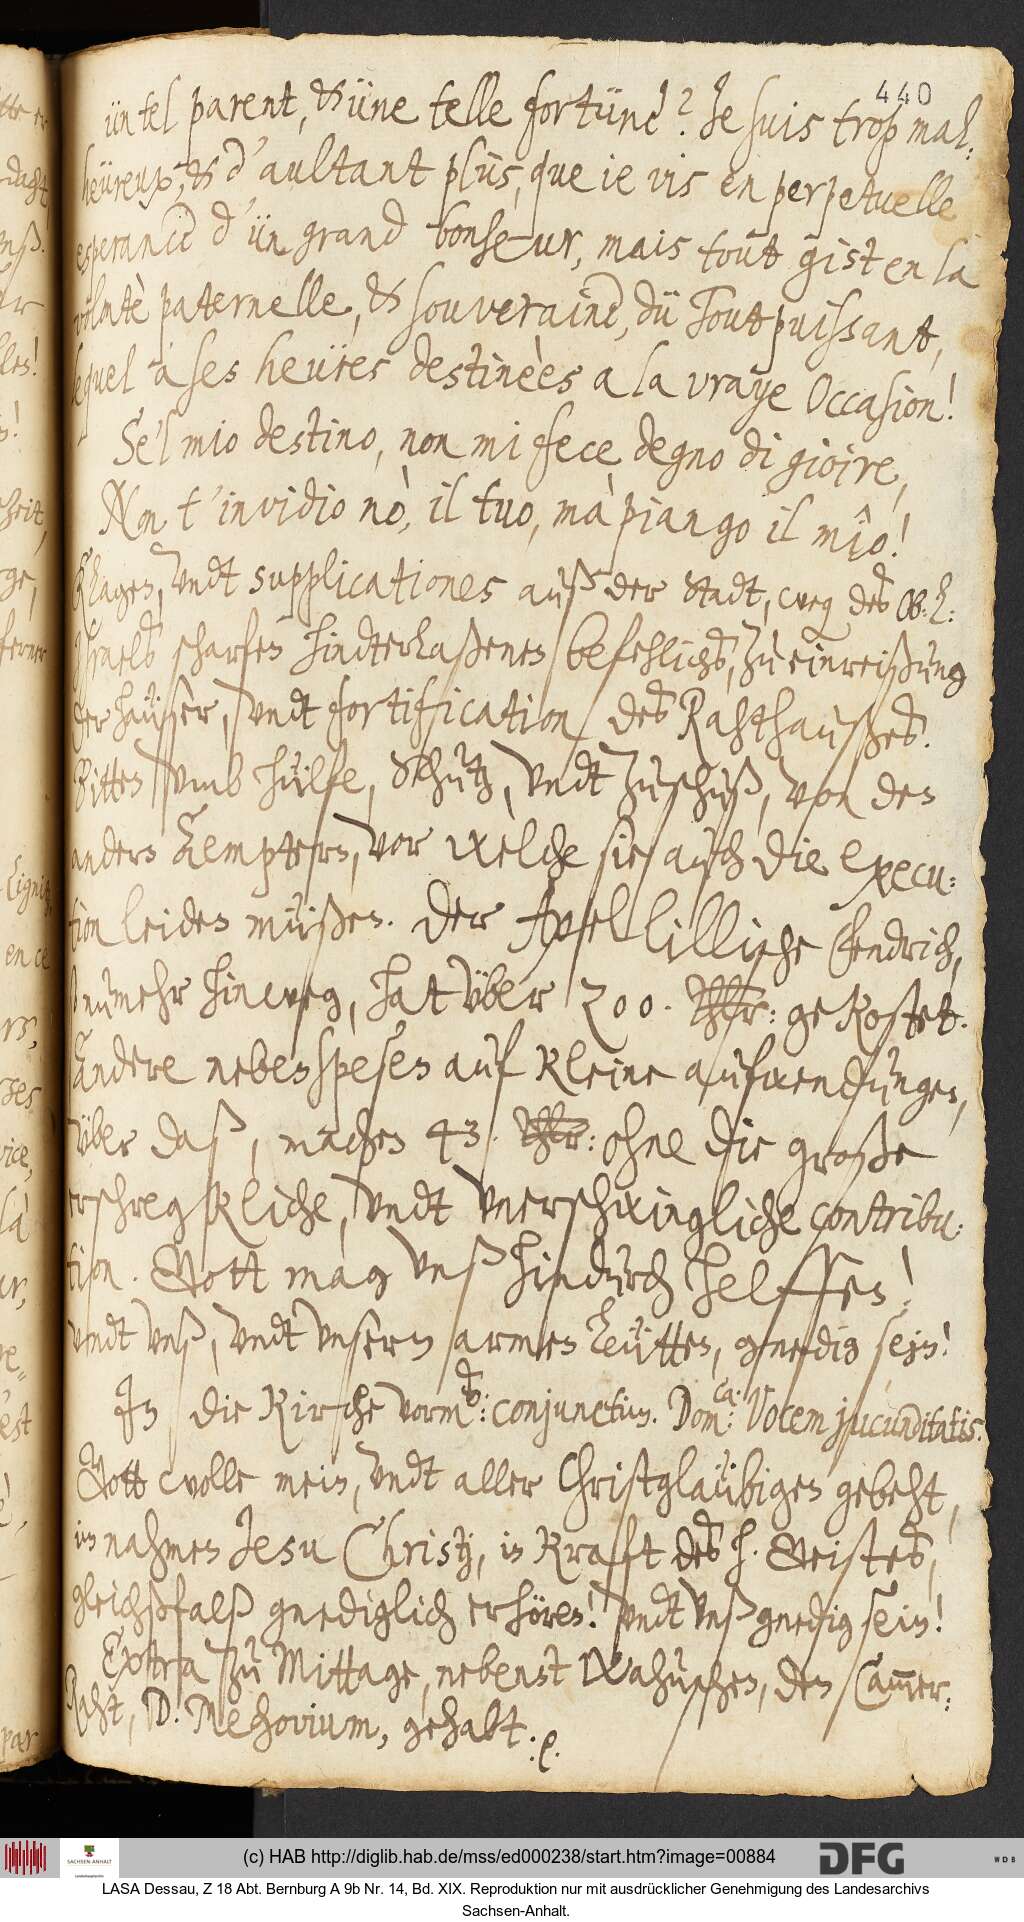 440
ün tel parent, & üne telle fortüne? Je suis trop mal:
heüreux, & d'aultant plüs, que ie vis en perpetuelle
esperance d'ün grand bonheur, mais tout gist en la
volontè paternelle, & souveraine, dü Tout puissant,
lequel a ses heüres destineès a la vraye Occasion!
Se'l mio destino, non mi fece degno di gioire,
Non t'invidio nò, il tuo, mà piango il mîo!
Klagen, vndt supplicationes auß der Stadt, weg des Ob: L:
Israels scharfen hindterlaßenen befehlichs, zu einreißung
der haüser, vndt fortification des Rahthaußes.
Bitten vmb hülfe, Schutz, vndt zuschuß, von den
andern Aemptern, vor welche sie auch die execu:
tion leiden müßen. Der Axel lillische Fendrich,
so numehr hinweg, hat vber 200. Thlr: gekostet.
Andere neben spesen auf kleine aufwendungen,
vber daß, machen 43. Thlr: ohne die große
erschregkliche, vndt vnerschwingliche contribu:
tion. Gott mag vnß hindurch helffen!
vndt vnß, vndt vnsern armen Leütten, gnedig sein!
In die Kirche vorm: conjunctim. Dom:ca: Vocem jucunditatis.
Gott wolle mein, vndt aller Christglaübigen gebeht,
im nahmen Jesu Christj, in Krafft des h. Geistes,
gleichßfalß gnediglich erhören! vndt vnß gnedig sein!
Extra zu Mittage, nebenst Wahuschen, den Cammer:
Raht, D. Mechovium, gehabt. :e.
(c) HAB http://diglib.hab.de/mss/ed000238/start.htm?image=00884
SACHSEN-ANHALT
DFG
WDB
LASA Dessau, Z 18 Abt. Bernburg A 9b Nr. 14, Bd. XIX. Reproduktion nur mit ausdrücklicher Genehmigung des Landesarchivs
Sachsen-Anhalt.